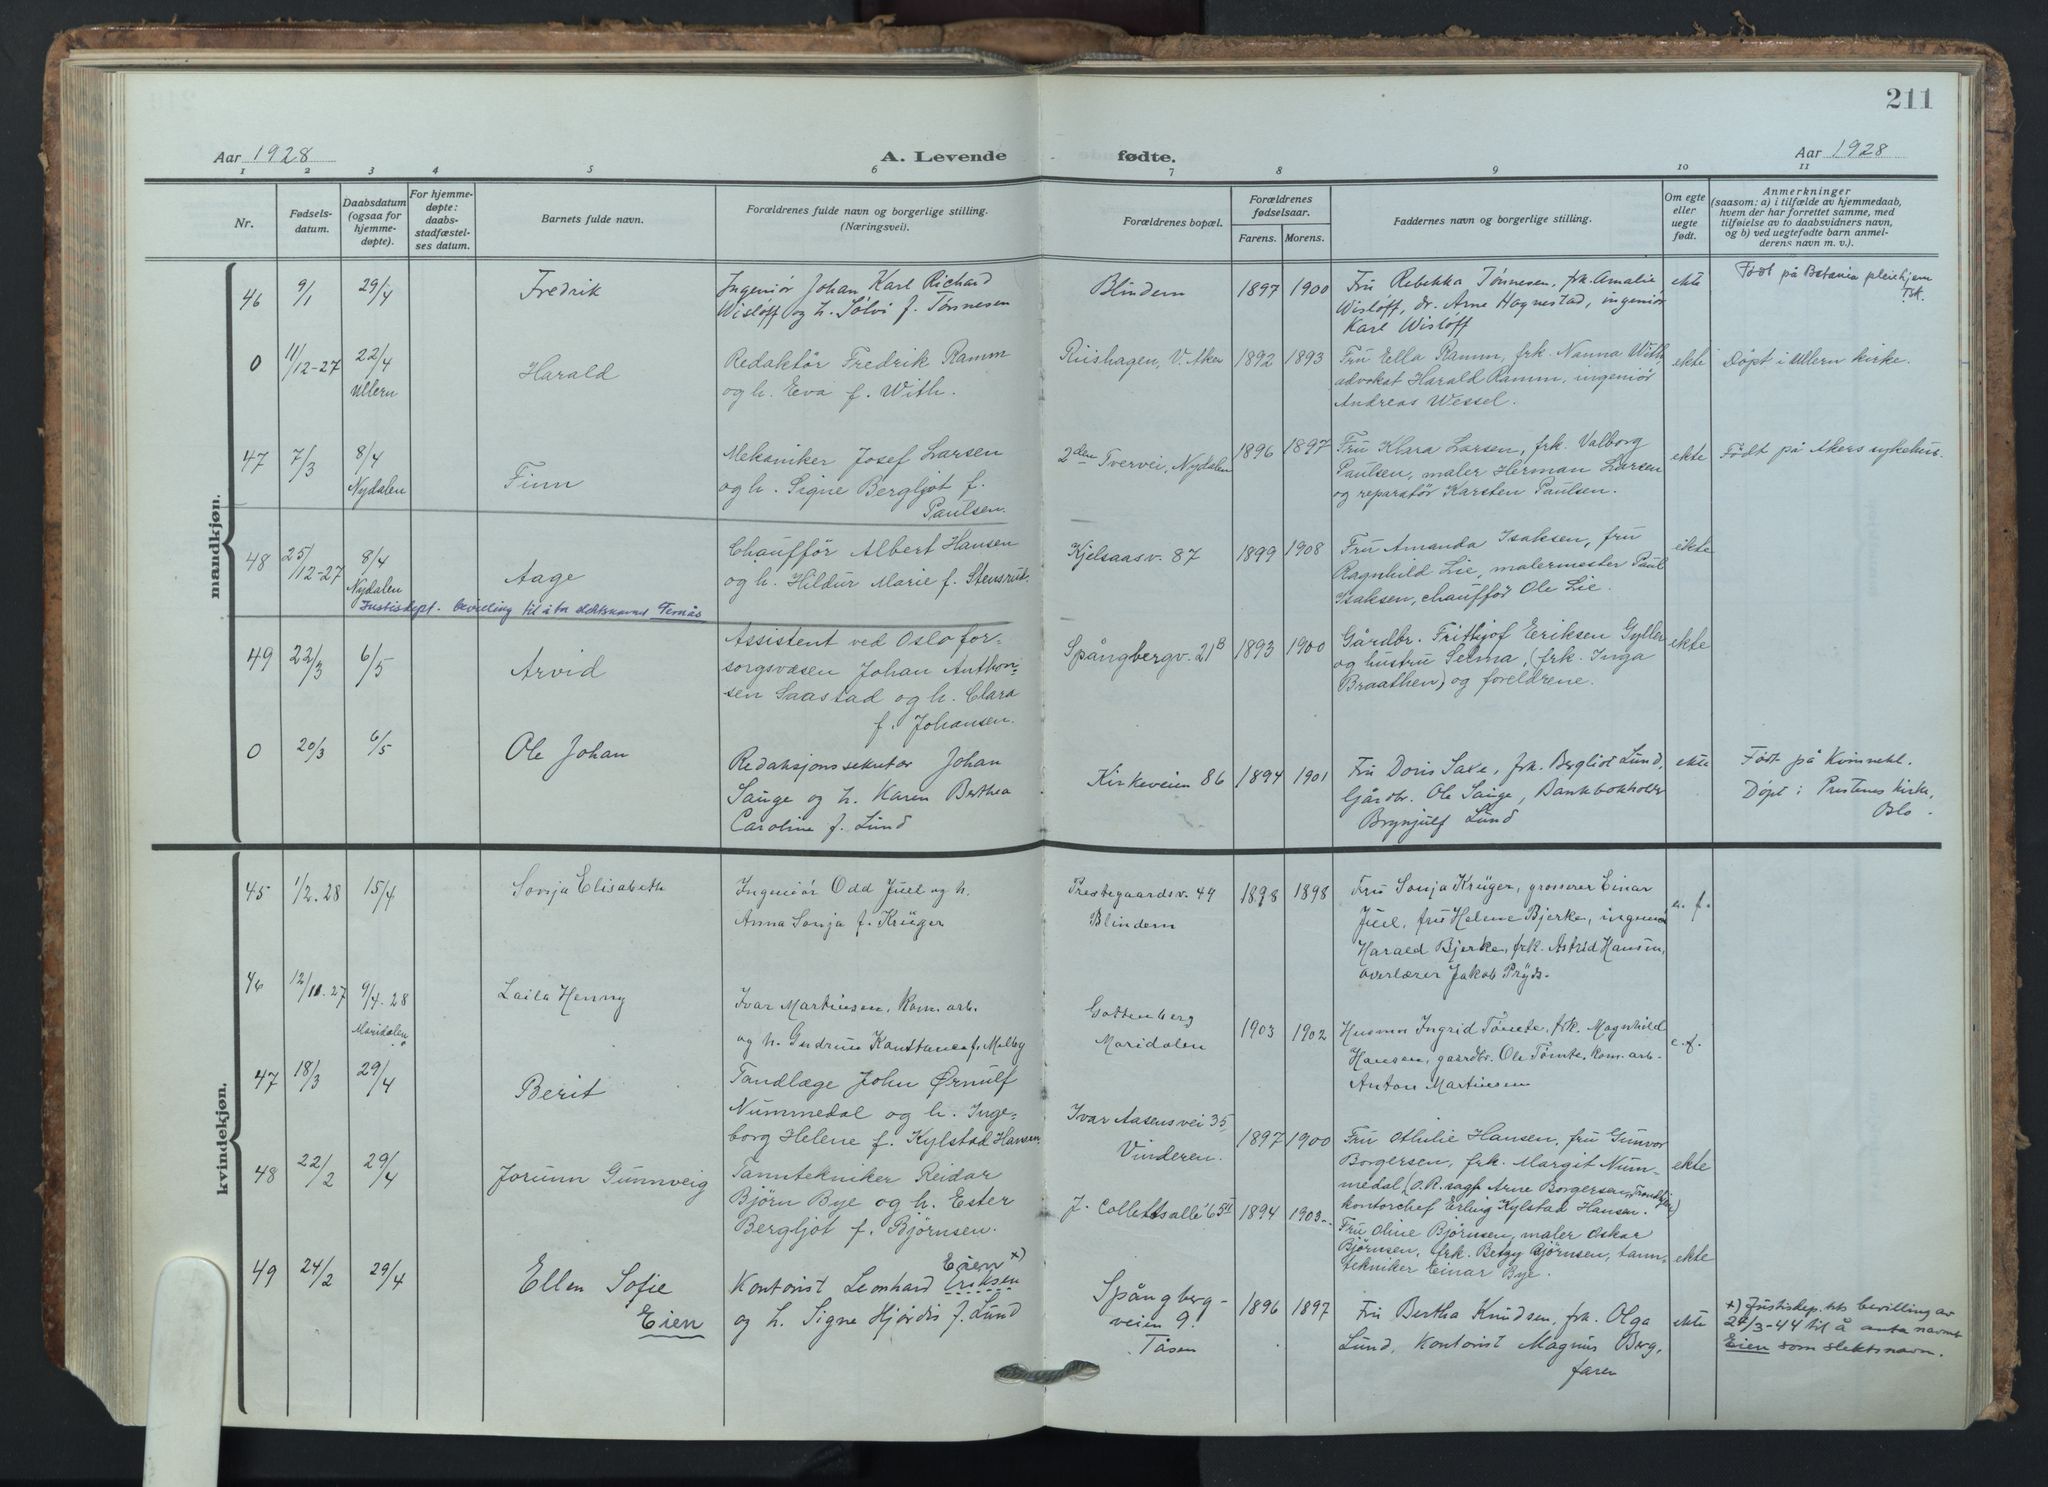 211
Aar 1928
A. Levende
fødte.
Aar 1928
1 2 3 4 5 6 7 8 9 10 11
Nr.
Fødsels-
datum.
Daabsdatum
(ogsaa for
hjemme-
døpte).
For hjemme-
døpte:
daabs-
stadfæstel-
ses datum.
Barnets fulde navn.
Forældrenes fulde navn og borgerlige stilling.
(Næringsvei).
Forældrenes bopæl.
Forældrenes
fødselsaar.
Farens. Morens.
Faddernes navn og borgerlige stilling.
Om egte
eller
uegte
født.
Anmerkninger
(saasom: a) i tilfælde av hjemmedaab,
hvem der har forrettet samme, med
tilføielse av to daabsvidners navn,
og b) ved uegtefødte barn anmel-
derens navn m. v.).
mandkjøn.
46 9/1 29/4 Fredrik
Ingeniør Johan Karl Richard
Wisløff og h. Sølvi f. Tønnesen
Blindern 1897 1900
Fru Rebekka Tønnesen, frk. Amalie
Wisløff, dr. Arne Høgnestad, ingeniør
Karl Wisløff
ekte
Født på Betania pleiehjem
Tsk.
0 11/12-27 22/4 Ullern Harald
Redaktör Fredrik Ramm
og h. Eva f. With.
Riishagen, V. Aker 1892 1893
Fru Ella Ramm, frk. Nanna With,
advokat Harald Ramm, ingeniör
Andreas Wessel.
ekte
Döpt i Ullern kirke.
47 7/3 8/4 Nydalen Finn
Mekaniker Josef Larsen
og h. Signe Bergljot f.
Paulsen.
2den Tvervei, Nydalen 1896 1897
Fru Klara Larsen, frk. Valborg
Paulsen, maler Herman Larsen
og reparatör Karsten Paulsen.
ekte
Født på Akers sykehus.
48 25/12-27 8/4 Nydalen Aage
Chaufför Albert Hansen
og h. Hildur Marie f. Stensrud.
Kjelsaasv. 87 1899 1908
Fru Amanda Isaksen, fru
Ragnhild Lie, malermester Paul
Isaksen, chaufför Ole Lie.
ekte
Justisdept. bevilling til å ta slektsnavnet Fernås
49 22/3 6/5 Arvid
Assistent ved Oslo for-
sorgsvæsen Johan Anthon-
sen Saastad og h. Clara
f. Johansen.
Spångbergv. 21B 1893 1900
Gårdbr. Frithjof Eriksen Gyller
og hustru Selma, (frk. Inga
Braathen) og foreldrene.
ekte
0 20/3 6/5 Ole Johan
Redaksjonssekretær Johan
Sauge og h. Karen Berthea
Caroline f. Lund
Kirkeveien 86 1894 1901
Fru Doris Saxe, frk. Bergliot Lund,
Gårdbr. Ole Sauge, Bankbokholder
Brynjulf Lund
ekte
Født på Kvinnekl.
Döpt i Prestenes kirke,
Oslo.
kvindekjøn.
45 1/2.28 15/4 Sonja Elisabeth
Ingeniör Odd Juel og h.
Anna Sonja f. Krüger
Prestegaardsv. 44
Blindern
1898 1898
Fru Sonja Krüger, grosserer Einar
Juel, fru Helene Bjerke, ingeniør
Harald Bjerke, frk. Astrid Hansen,
overlærer Jakob Prydz.
e. f.
46 12/11.27 9/4.28 Maridalen Laila Henny
Ivar Martinsen, kom. arb.
og h. Gudrun f. Melby
Maridalen
1903 1902
Ingrid Tömte, frk. Magnhild
Hansen, gaardbr. Ole Tömte, kom. arb.
Anton Martinsen
e. f.
47 18/3 29/4 Berit
Tandlæge John Ørnulf
Nummedal og h. Inge-
borg Helene f. Kylstad Hansen
Ivar Aasensvei 35
Vinderen.
1897 1900
Fru Othilie Hansen, fru Gunvor
Borgersen, frk. Margit Num-
medal, (O.R.sagf. Arne Borgersen, Trondhjem)
kontorchef Erling Kylstad Hansen.
ekte
48 22/2 29/4 Jorunn Gunnveig
Tanntekniker Reidar
Björn Bye og h. Ester
Bergljot f. Björnsen.
J. Collettsallé 65II 1894 1903
Fru Oline Björnsen, maler Oskar
Björnsen, frk. Betzy Björnsen, tann-
tekniker Einar Bye.
ekte
49 24/2 29/4 Ellen Sofie
Eien
Eien x)
Kontorist Leonhard Eriksen
og h. Signe Hjördis f. Lund
Spångberg-
veien 9.
Tåsen
1896 1897
Fru Bertha Knudsen, frk. Olga
Lund, kontorist Magnus Berg,
faren
ekte
x) Justisdep.tets bevilling av
24/3-44 til å anta navnet
Eien som slektsnavn.